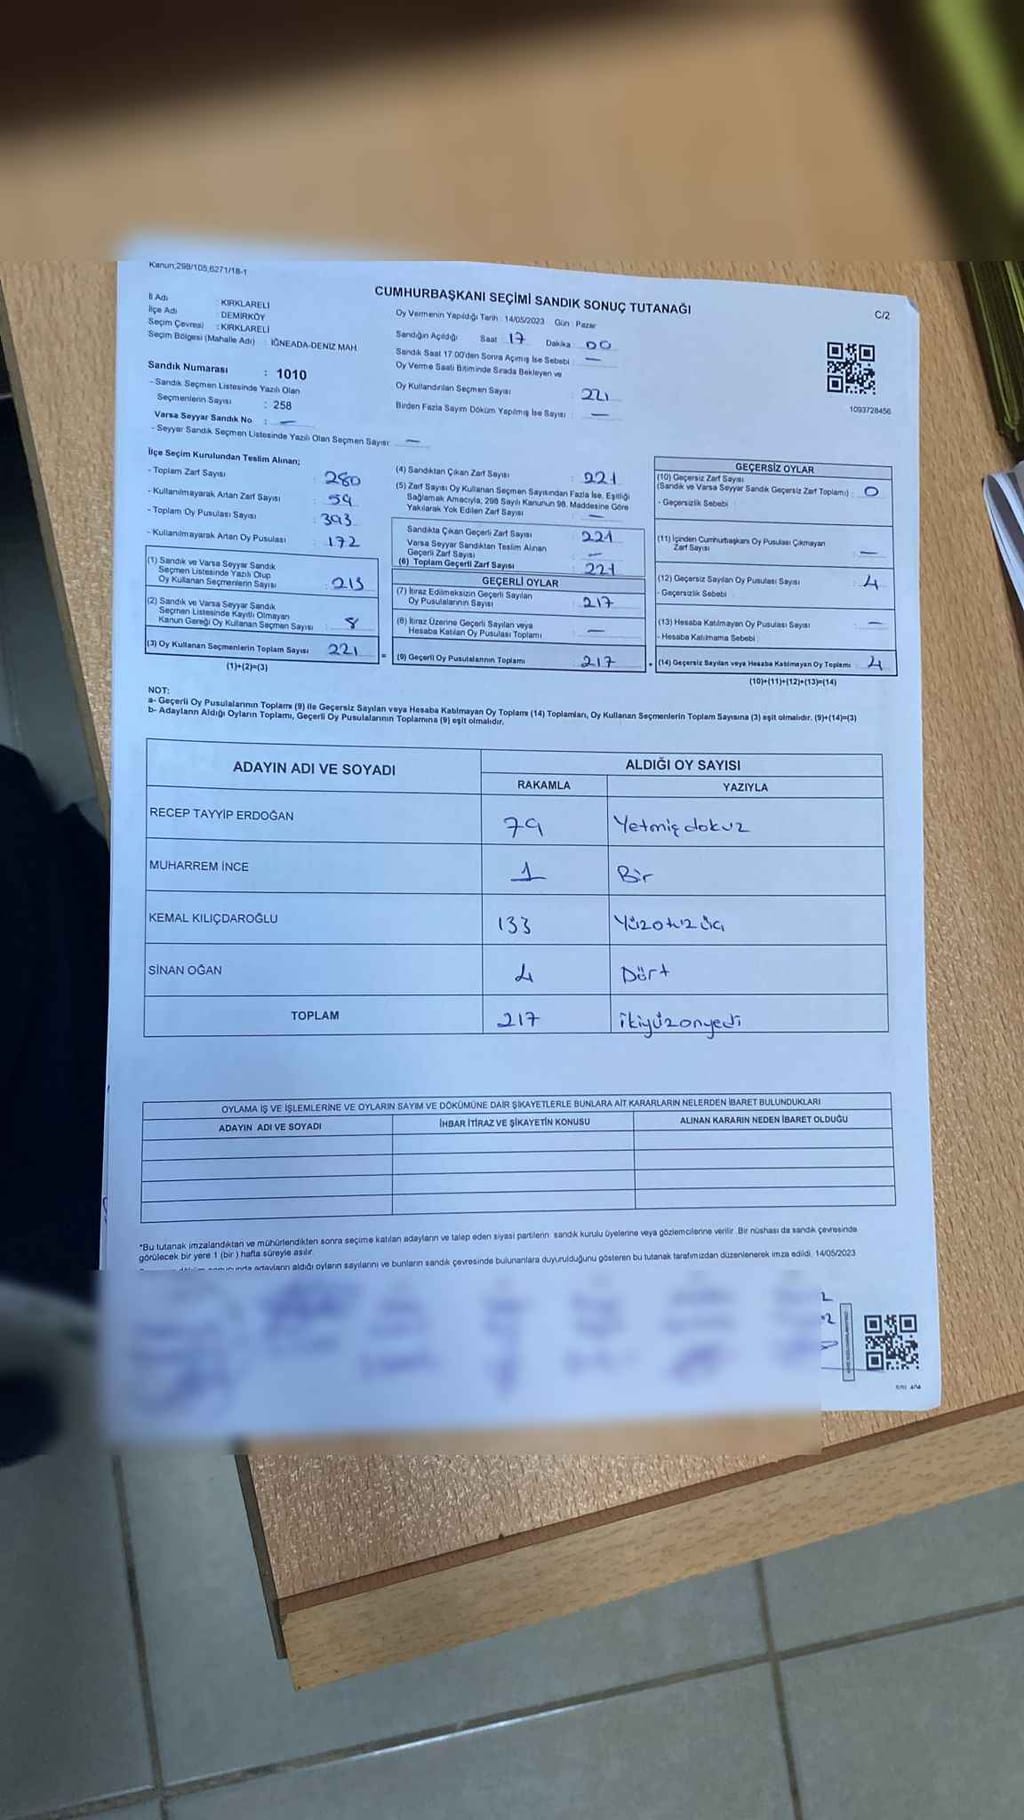 Kanun;298/105,6271/18-1
CUMHURBAŞKANI SEÇİMİ SANDIK SONUÇ TUTANAĞI
C/2
İl Adı : KIRKLARELİ
İlçe Adı : DEMİRKÖY
Seçim Çevresi : KIRKLARELİ
Seçim Bölgesi (Mahalle Adı) : İĞNEADA-DENİZ MAH.
Oy Vermenin Yapıldığı Tarih : 14/05/2023 Gün : Pazar
Sandığın Açıldığı Saat 17 Dakika 00
Sandık Saat 17.00'den Sonra Açılmış İse Sebebi : —
Oy Verme Saati Bitiminde Sırada Bekleyen ve
Oy Kullandırılan Seçmen Sayısı : 221
Birden Fazla Sayım Döküm Yapılmış İse Sayısı : —
1093728456
Sandık Numarası : 1010
- Sandık Seçmen Listesinde Yazılı Olan
Seçmenlerin Sayısı : 258
Varsa Seyyar Sandık No : —
- Seyyar Sandık Seçmen Listesinde Yazılı Olan Seçmen Sayısı: —
İlçe Seçim Kurulundan Teslim Alınan;
- Toplam Zarf Sayısı : 280
- Kullanılmayarak Artan Zarf Sayısı : 59
- Toplam Oy Pusulası Sayısı : 393
- Kullanılmayarak Artan Oy Pusulası : 172
(1) Sandık ve Varsa Seyyar Sandık
Seçmen Listesinde Yazılı Olup
Oy Kullanan Seçmenlerin Sayısı : 213
(2) Sandık ve Varsa Seyyar Sandık
Seçmen Listesinde Kayıtlı Olmayan
Kanun Gereği Oy Kullanan Seçmen Sayısı : 8
(3) Oy Kullanan Seçmenlerin Toplam Sayısı 221
(1)+(2)=(3)
(4) Sandıktan Çıkan Zarf Sayısı : 221
(5) Zarf Sayısı Oy Kullanan Seçmen Sayısından Fazla İse, Eşitliği
Sağlamak Amacıyla, 298 Sayılı Kanunun 98. Maddesine Göre
Yakılarak Yok Edilen Zarf Sayısı : —
Sandıkta Çıkan Geçerli Zarf Sayısı : 221
Varsa Seyyar Sandıktan Teslim Alınan
Geçerli Zarf Sayısı : —
(6) Toplam Geçerli Zarf Sayısı : 221
GEÇERLİ OYLAR
(7) İtiraz Edilmeksizin Geçerli Sayılan
Oy Pusulalarının Sayısı : 217
(8) İtiraz Üzerine Geçerli Sayılan veya
Hesaba Katılan Oy Pusulası Toplamı : —
= (9) Geçerli Oy Pusulalarının Toplamı : 217
GEÇERSİZ OYLAR
(10) Geçersiz Zarf Sayısı
(Sandık ve Varsa Seyyar Sandık Geçersiz Zarf Toplamı) : 0
- Geçersizlik Sebebi :
(11) İçinden Cumhurbaşkanı Oy Pusulası Çıkmayan
Zarf Sayısı : —
(12) Geçersiz Sayılan Oy Pusulası Sayısı : 4
- Geçersizlik Sebebi :
(13) Hesaba Katılmayan Oy Pusulası Sayısı : —
- Hesaba Katılmama Sebebi :
+ (14) Geçersiz Sayılan veya Hesaba Katılmayan Oy Toplamı : 4
(10)+(11)+(12)+(13)=(14)
NOT:
a- Geçerli Oy Pusulalarının Toplamı (9) ile Geçersiz Sayılan veya Hesaba Katılmayan Oy Toplamı (14) Toplamları, Oy Kullanan Seçmenlerin Toplam Sayısına (3) eşit olmalıdır. (9)+(14)=(3)
b- Adayların Aldığı Oyların Toplamı, Geçerli Oy Pusulalarının Toplamına (9) eşit olmalıdır.
ADAYIN ADI VE SOYADI
ALDIĞI OY SAYISI
RAKAMLA YAZIYLA
RECEP TAYYİP ERDOĞAN 79 Yetmiş dokuz
MUHARREM İNCE 1 Bir
KEMAL KILIÇDAROĞLU 133 Yüzotuzüç
SİNAN OĞAN 4 Dört
TOPLAM 217 ikiyüzonyedi
OYLAMA İŞ VE İŞLEMLERİNE VE OYLARIN SAYIM VE DÖKÜMÜNE DAİR ŞİKAYETLERLE BUNLARA AİT KARARLARIN NELERDEN İBARET BULUNDUKLARI
ADAYIN ADI VE SOYADI İHBAR İTİRAZ VE ŞİKAYETİN KONUSU ALINAN KARARIN NEDEN İBARET OLDUĞU
*Bu tutanak imzalandıktan ve mühürlendikten sonra seçime katılan adayların ve talep eden siyasi partilerin sandık kurulu üyelerine veya gözlemcilerine verilir. Bir nüshası da sandık çevresinde
görülecek bir yere 1 (bir) hafta süreyle asılır.
adayların aldığı oyların sayılarını ve bunların sandık çevresinde bulunanlara duyurulduğunu gösteren bu tutanak tarafımızdan düzenlenerek imza edildi. 14/05/2023